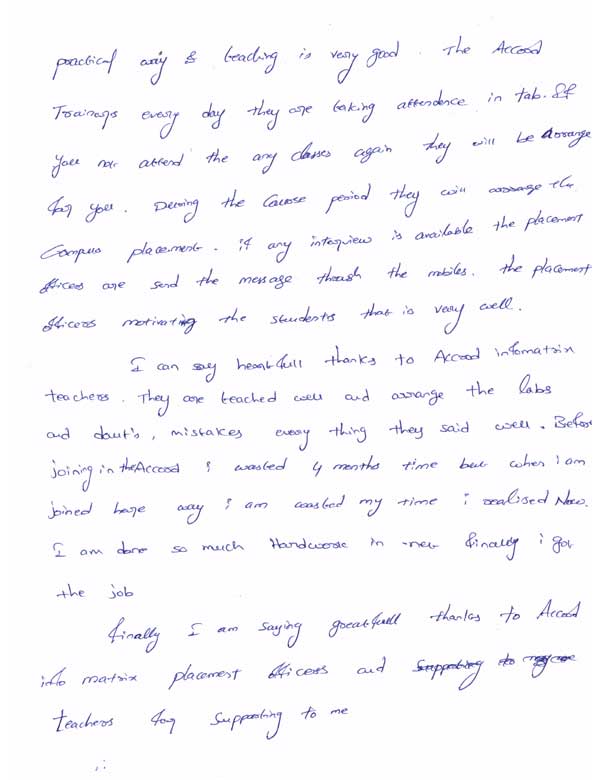 practical way & teaching is very good. The Accord
Trainers every day they are taking attendence in tab. If
you not attend the any classes again they will be Arrange
for you. During the Course period they will arrange the
Compus placement. if any interview is available the placement
officers are send the message through the mobiles. the placement
officers motivating the students that is very well.
I can say heartfull thanks to Accord infomatrix
teachers. They are teached well and arrange the labs
and daut's, mistakes every thing they said well. Before
joining in the Accord i wasted 4 months time but when i am
joined here way i am wasted my time i realised Now.
I am done so much Hardwork in finally i got
the job
finally I am saying greatfull thanks to Accord
info matrix placement officers and
teachers for Supporting to me